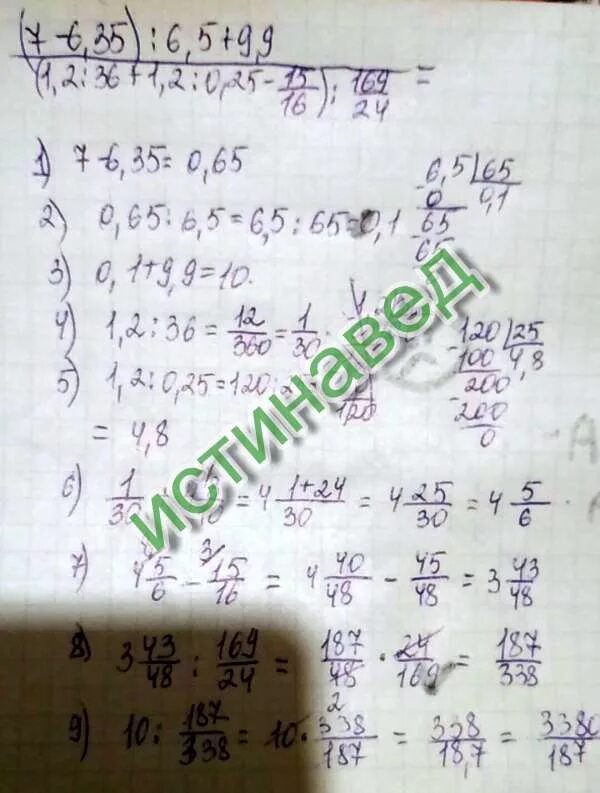 (7-6,35) : 6,5+9,9
(1,2:36+1,2:0,25-15/16) : 169/24 =
1) 7-6,35=0,65
2) 0,65:6,5=6,5:65=0,1
6,5 | 65
0 0,1
65
65
3) 0,1+9,9=10.
4) 1,2:36=12/360=1/30
5) 1,2:0,25=120:
= 4,8
120 | 25
100 4,8
200
200
0
6) 1/30 = 4 1+24/30 = 4 25/30 = 4 5/6
7) 4 5/6 - 15/16 = 4 40/48 - 45/48 = 3 43/48
8) 3 43/48 : 169/24 = 187/48 · 24/169 = 187/338
2
9) 10 : 187/338 = 10 · 338/187 = 338/18,7 = 3380/187
ИСТИНАВЕД